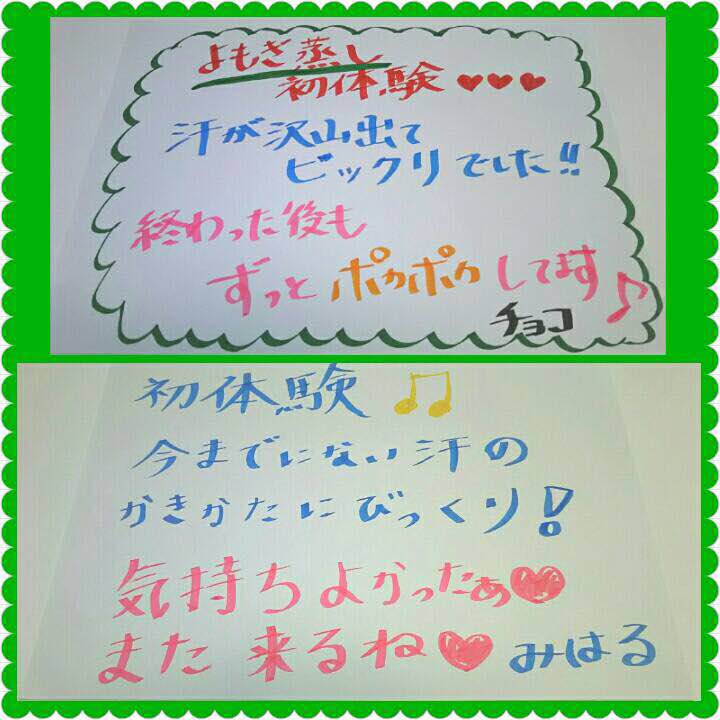 よもぎ蒸し
初体験♥♥♥
汗が沢山出て
ビックリでした!!
終わった後も
ずっとポカポカしてます♪
チョコ
初体験♫
今までにない汗の
かきかたにびっくり!
気持ちよかったぁ♥
また来るね♥みはる